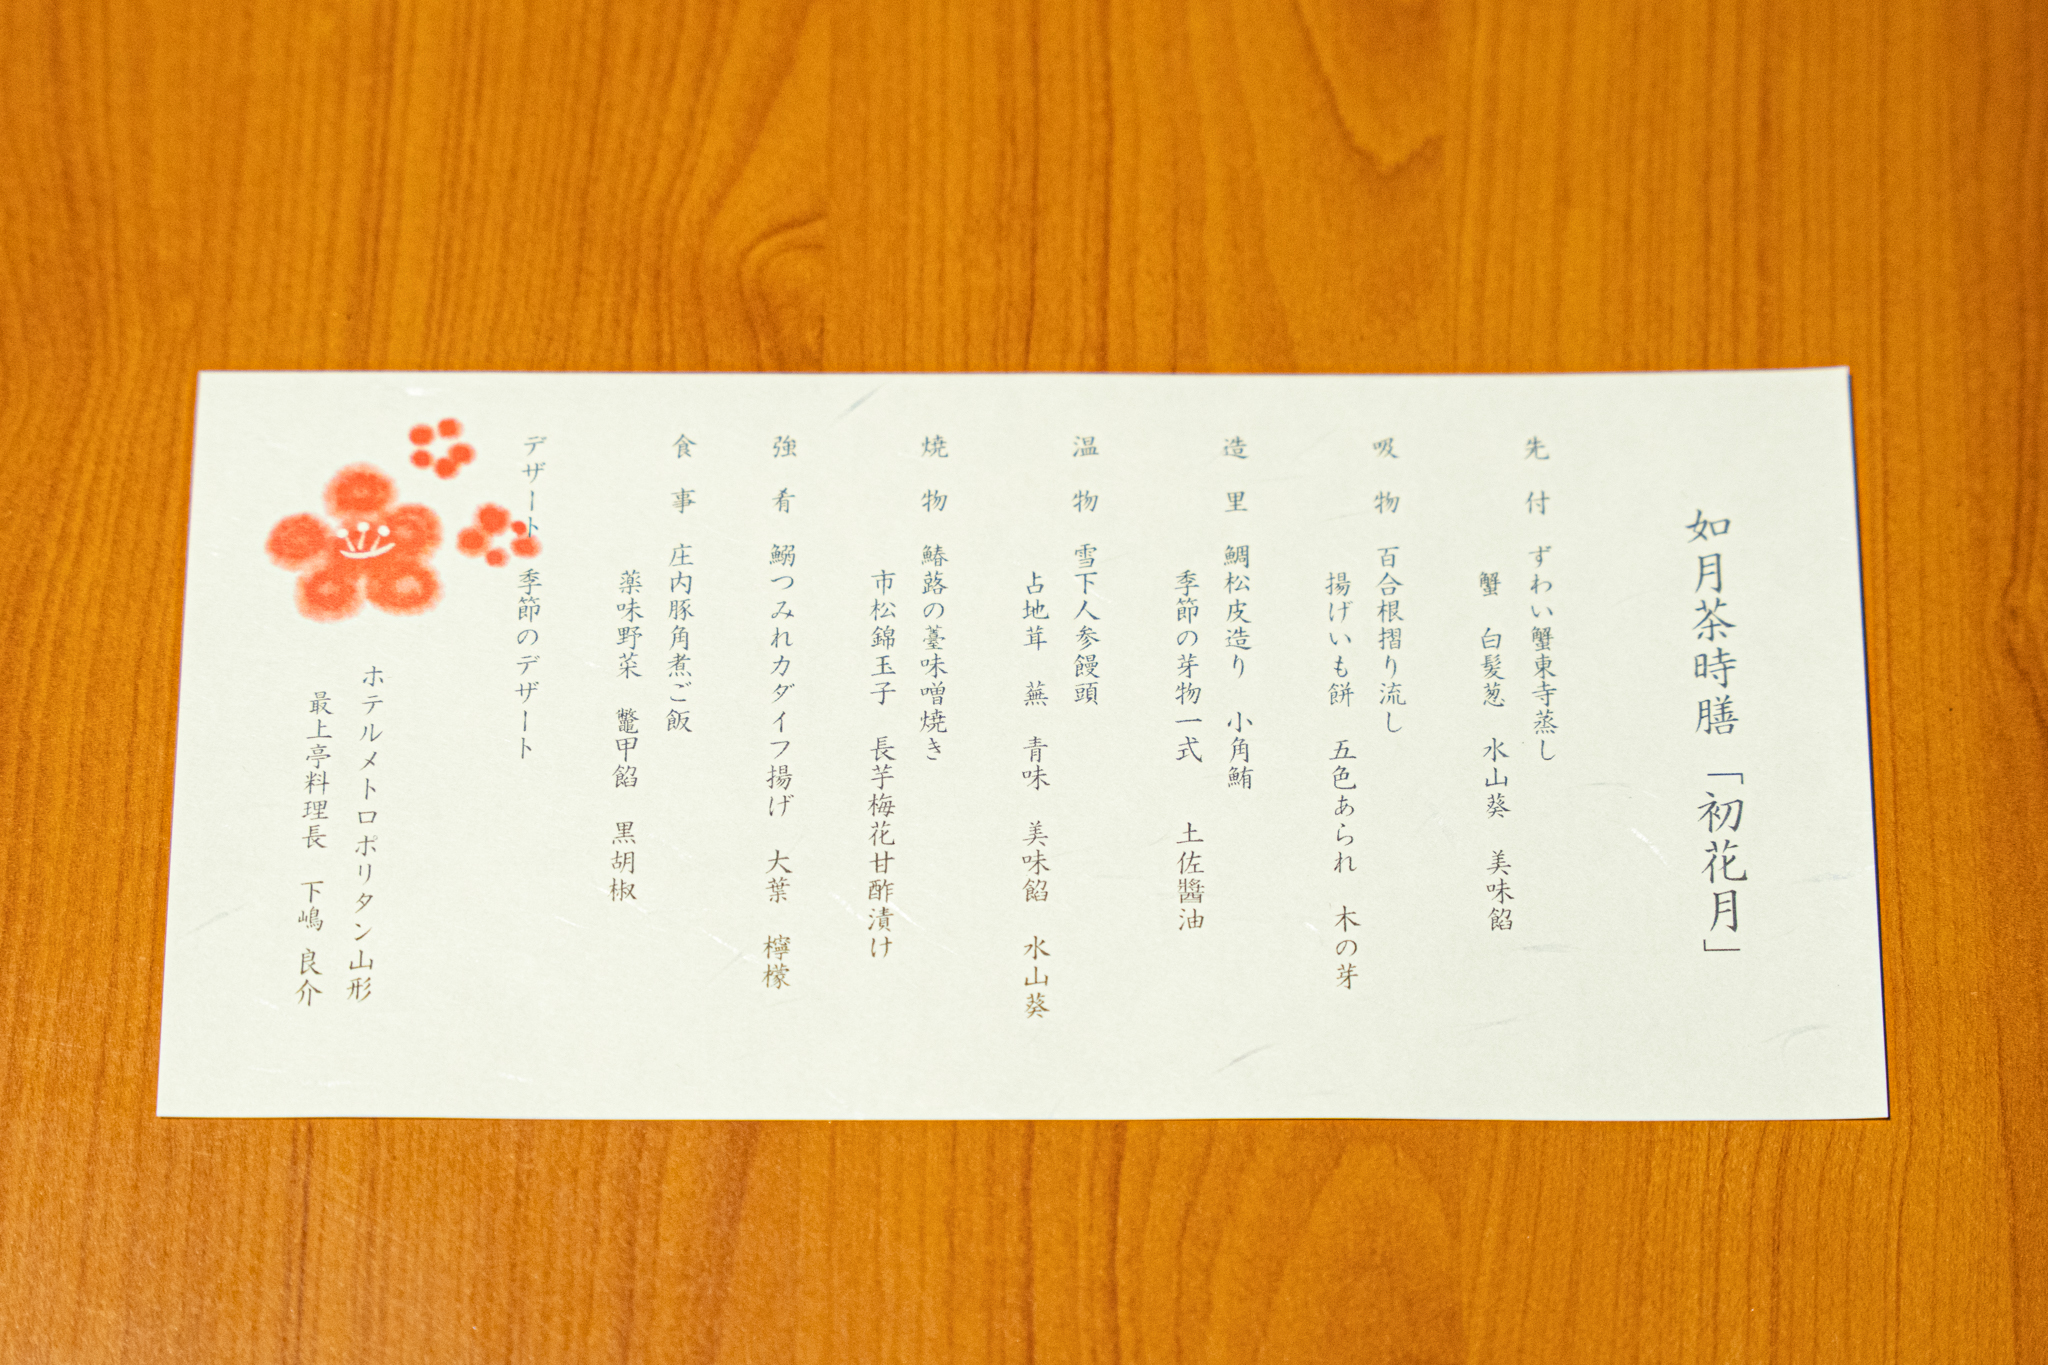 如月茶時膳「初花月」
先付 ずわい蟹東寺蒸し
蟹 白髪葱 水山葵 美味餡
吸物 百合根摺り流し
揚げいも餅 五色あられ 木の芽
造里 鯛松皮造り 小角鮪
季節の芽物一式 土佐醬油
温物 雪下人参饅頭
占地茸 蕪 青味 美味餡 水山葵
焼物 鰆蕗の薹味噌焼き
市松錦玉子 長芋梅花甘酢漬け
強肴 鰯つみれカダイフ揚げ 大葉 檸檬
食事 庄内豚角煮ご飯
薬味野菜 鼈甲餡 黒胡椒
デザート 季節のデザート
ホテルメトロポリタン山形
最上亭料理長 下嶋 良介